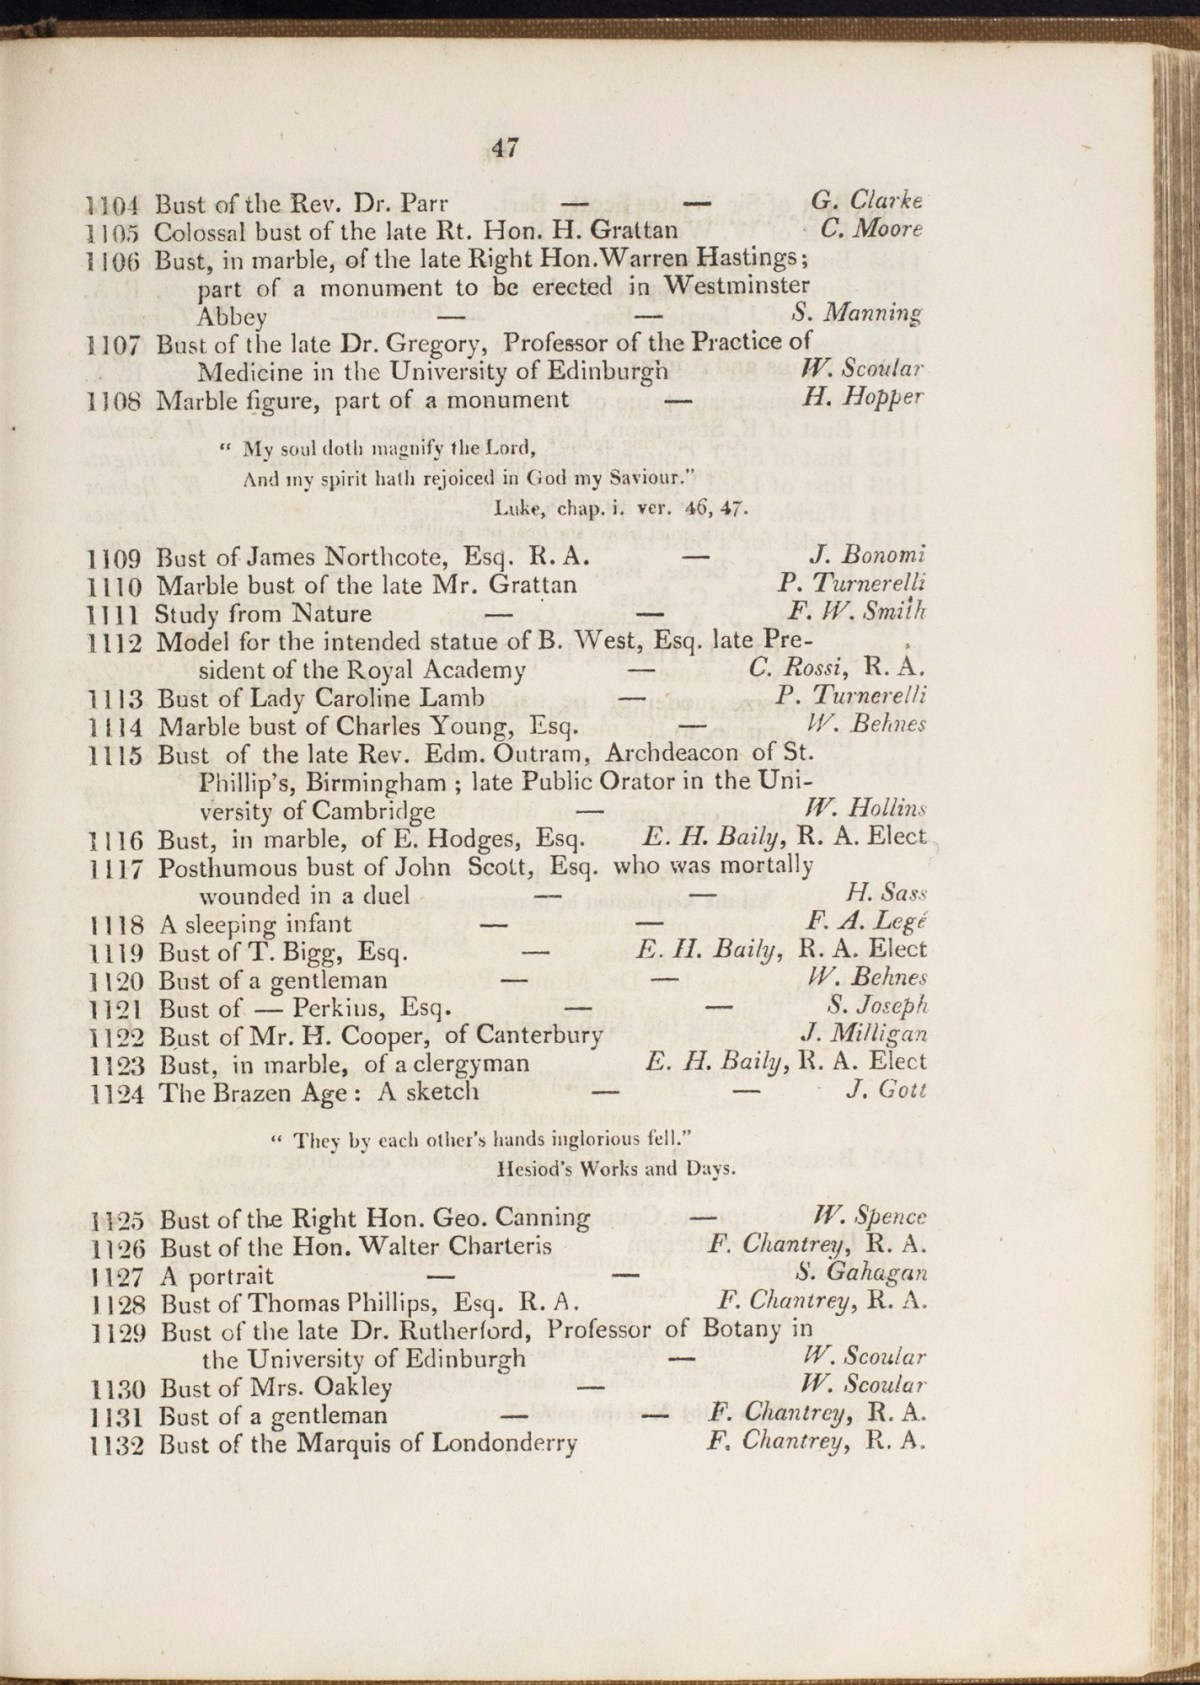 47
1104 Bust of the Rev. Dr. Parr — — G. Clarke
1105 Colossal bust of the late Rt. Hon. H. Grattan C. Moore
1106 Bust, in marble, of the late Right Hon. Warren Hastings;
part of a monument to be erected in Westminster
Abbey — — S. Manning
1107 Bust of the late Dr. Gregory, Professor of the Practice of
Medicine in the University of Edinburgh W. Scoular
1108 Marble figure, part of a monument — H. Hopper
“ My soul doth magnify the Lord,
And my spirit hath rejoiced in God my Saviour.”
Luke, chap. i. ver. 46, 47.
1109 Bust of James Northcote, Esq. R. A. — J. Bonomi
1110 Marble bust of the late Mr. Grattan P. Turnerelli
1111 Study from Nature — — F. W. Smith
1112 Model for the intended statue of B. West, Esq. late Pre-
sident of the Royal Academy — C. Rossi, R. A.
1113 Bust of Lady Caroline Lamb — P. Turnerelli
1114 Marble bust of Charles Young, Esq. — W. Behnes
1115 Bust of the late Rev. Edm. Outram, Archdeacon of St.
Phillip's, Birmingham ; late Public Orator in the Uni-
versity of Cambridge — W. Hollins
1116 Bust, in marble, of E. Hodges, Esq. E. H. Baily, R. A. Elect
1117 Posthumous bust of John Scott, Esq. who was mortally
wounded in a duel — — H. Sass
1118 A sleeping infant — — F. A. Legé
1119 Bust of T. Bigg, Esq. — E. H. Baily, R. A. Elect
1120 Bust of a gentleman — — W. Behnes
1121 Bust of — Perkins, Esq. — — S. Joseph
1122 Bust of Mr. H. Cooper, of Canterbury J. Milligan
1123 Bust, in marble, of a clergyman E. H. Baily, R. A. Elect
1124 The Brazen Age : A sketch — — J. Gott
“ They by each other's hands inglorious fell.”
Hesiod's Works and Days.
1125 Bust of the Right Hon. Geo. Canning — W. Spence
1126 Bust of the Hon. Walter Charteris F. Chantrey, R. A.
1127 A portrait — — S. Gahagan
1128 Bust of Thomas Phillips, Esq. R. A. F. Chantrey, R. A.
1129 Bust of the late Dr. Rutherford, Professor of Botany in
the University of Edinburgh — W. Scoular
1130 Bust of Mrs. Oakley — W. Scoular
1131 Bust of a gentleman — — F. Chantrey, R. A.
1132 Bust of the Marquis of Londonderry F. Chantrey, R. A.